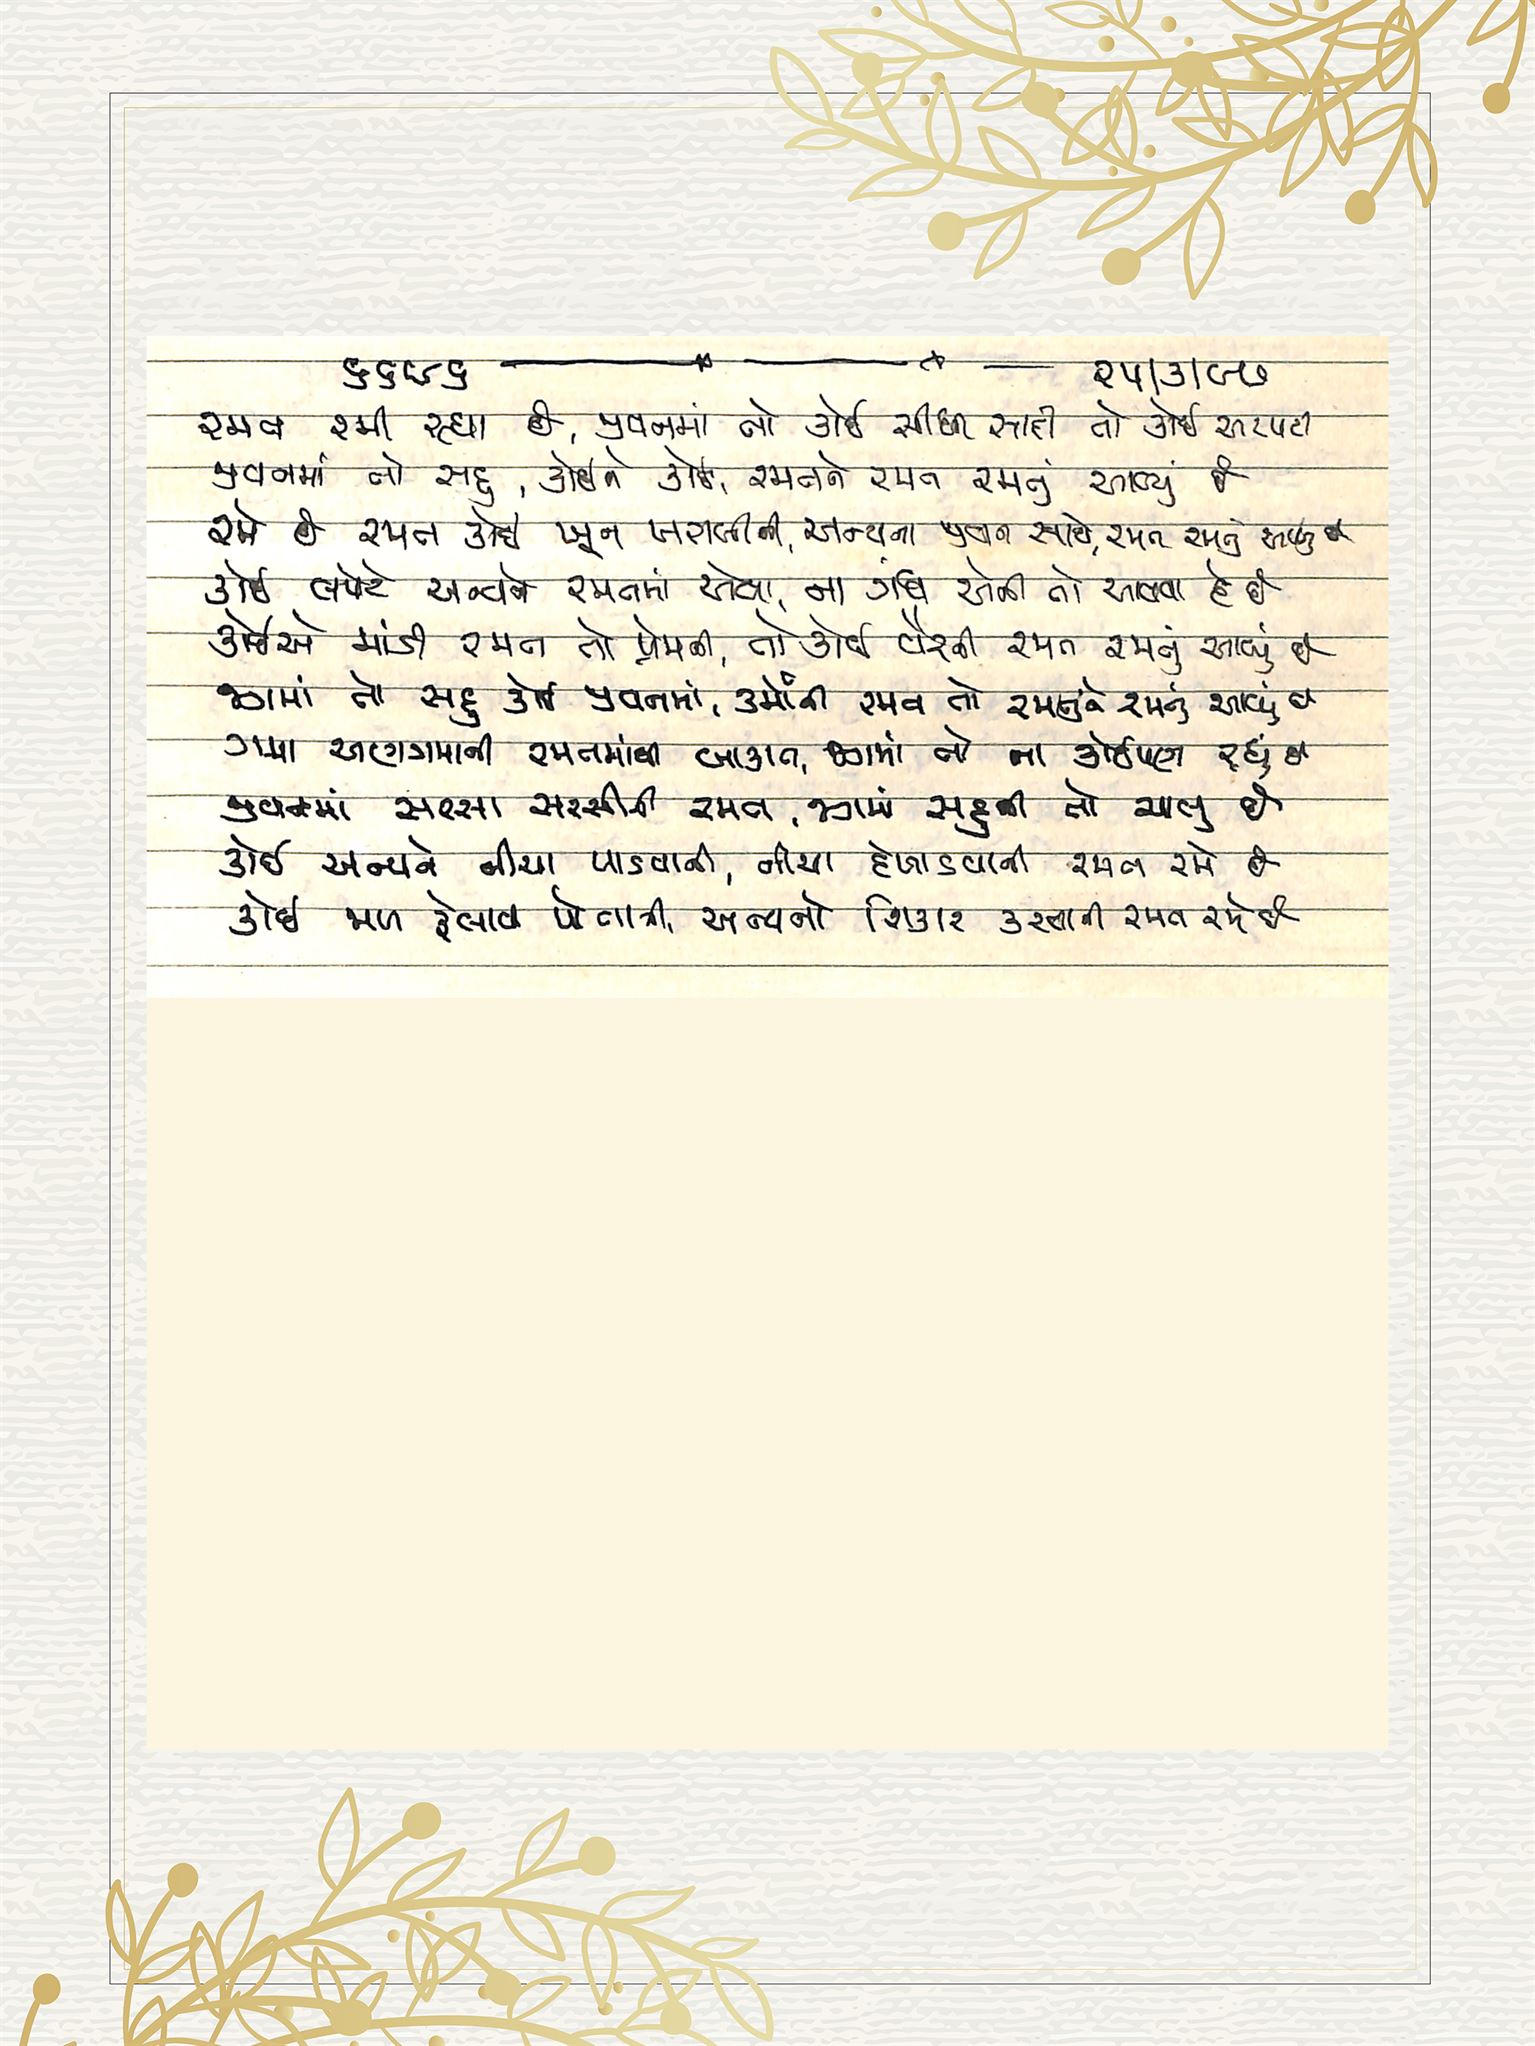 ૬૬૮૬ ૨૫/૩/૯૭
રમત રમી રહ્યા છે, જીવનમાં તો કોઈ સીધી સાદી તો કોઈ અટપટી
જીવનમાં તો સહુ, કોઈને કોઈ, રમતને રમત રમતું આવ્યું છે
રમે છે રમત કોઈ ખૂન ખરાબીની, અન્યના જીવન સાથે, રમત રમતું આવ્યું છે
કોઈ લપેટે અન્યને રમતમાં એવા, ના ગંધ એની તો આવવા દે છે
કોઈએ માંડી રમત તો પ્રેમની, તો કોઈ વૈરની રમત રમતું આવ્યું છે
જગમાં તો સહુ કોઈ જીવનમાં, કર્મોની રમત તો રમતુંને રમતું આવ્યું છે
ગમા અણગમાની રમતમાંથી બાકાત, જગમાં તો ના કોઈપણ રહ્યું છે
જીવનમાં સરસા સરસીની રમત, જગમાં સહુની તો ચાલુ છે
કોઈ અન્યને નીચા પાડવાની, નીચા દેખાડવાની રમત રમે છે
કોઈ જાળ ફેલાવી પોતાની, અન્યનો શિકાર કરવાની રમત રમે છે